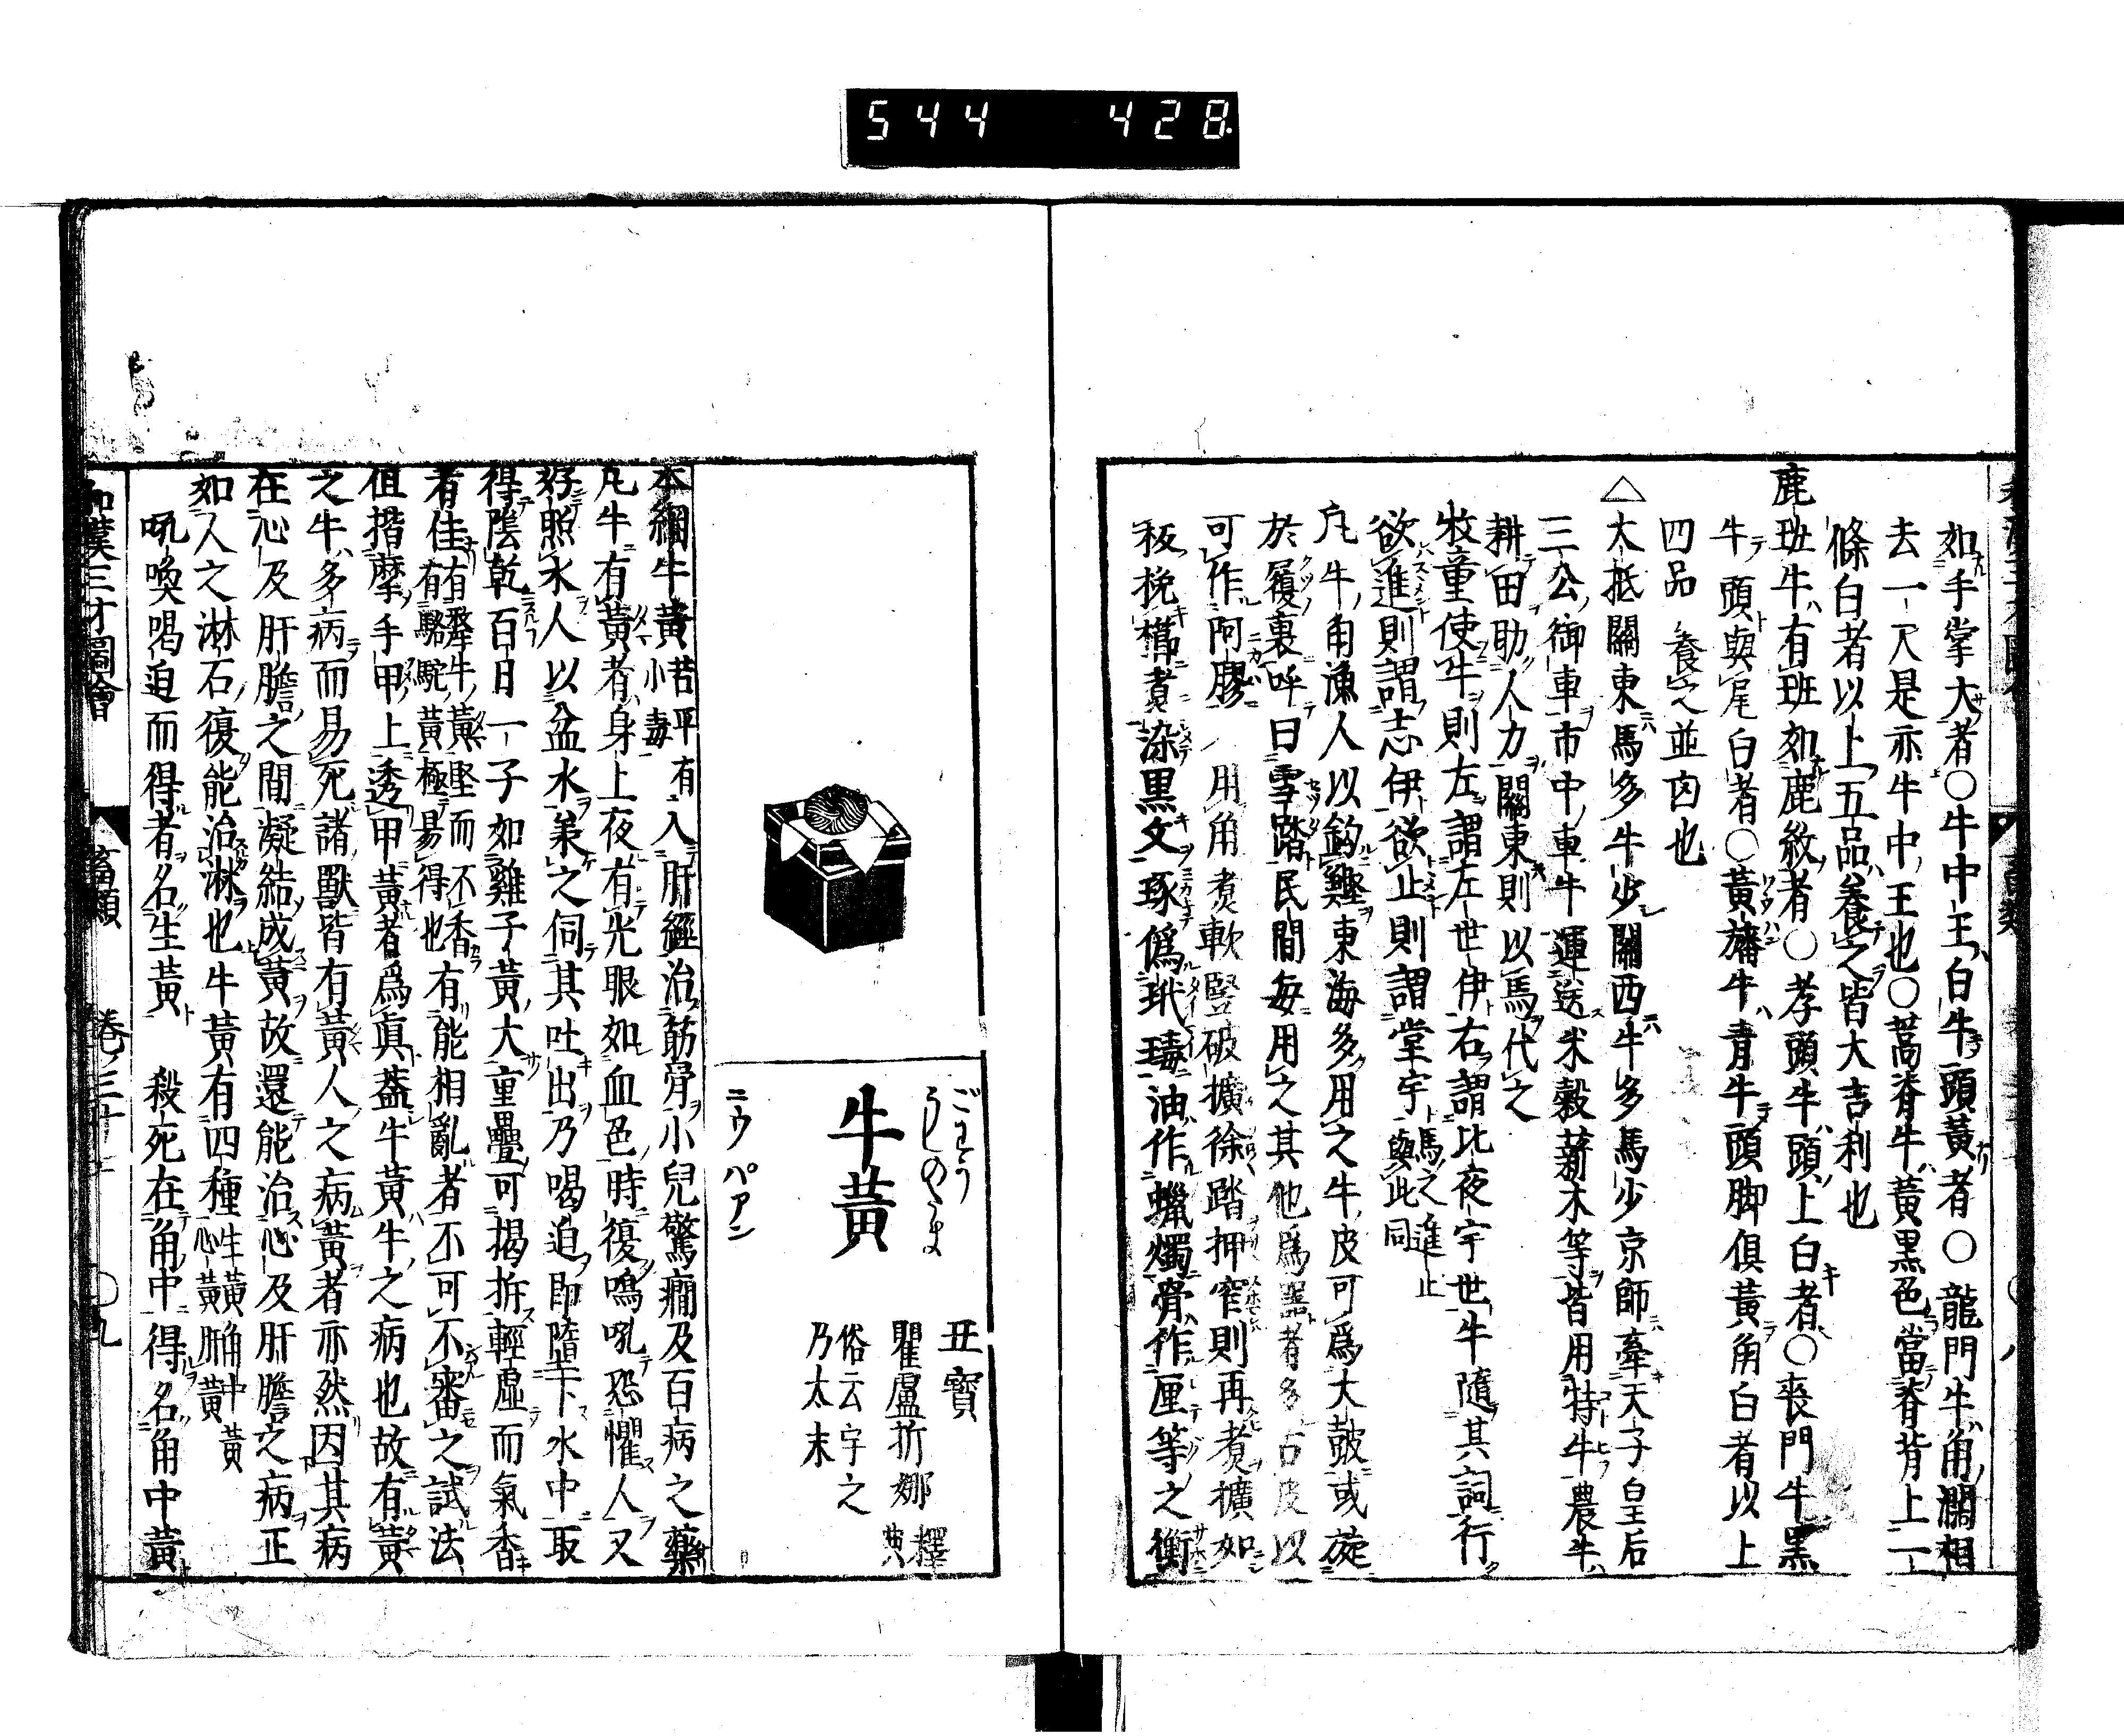 544 428
如手掌大者〇牛中王白牛頭黃者〇龍門牛角瀾相
去一尺是亦牛中王也〇蒿脊牛黃黑色當脊背上一
條白者以上五品養之皆大吉利也
鹿班牛有班如鹿紋者〇孝頭牛頭上白者〇喪門牛黑
牛頭與尾白者〇黃旛牛青牛頭脚俱黃角白者以上
四品養之並凶也
△大抵關東馬多牛少關西牛多馬少京師牽天子皇后
三公御車市中車牛運送米穀薪木等皆用特牛農牛
耕田助人力關東則以馬代之
牧童使牛則左謂左世伊右謂比夜宇世牛隨其詞行
欲進則謂志伊欲止則謂堂宇馬之進止與此同
凡牛角漁人以鈎鰹東海多用之牛皮可爲大皷或莚
於履裏呼曰雪踏民間每用之其他爲器者多古皮以
可作阿膠 用角煑軟竪破擴徐踏押窄則再煑擴如
板挽櫛煑染黑文琢僞玳瑇油作蠟燭骨作厘等之衡
ごわう
うしのたま
牛黃
ニウ パアン
丑寶
瞿盧折娜 釋典
俗云宇之
乃太末
本綱牛黃苦平有小毒入肝經治筋骨小兒驚癎及百病之藥
凡牛有黃者身上夜有光眼如血色時復鳴吼恐懼人又
好照水人以盆水承之伺其吐出乃喝迫即墮下水中取
得陰乾百日一子如雞子黃大重疊可揭拆輕虛而氣香
者佳有犛牛黃堅而不香有駱駝黃極易得也有能相亂者不可不審之試法
但揩摩手甲上透甲黃者爲眞蓋牛黃牛之病也故有黃
之牛多病而易死諸獸皆有黃人之病黃者亦然因其病
在心及肝膽之間凝結成黃故還能治心及肝膽之病正
如人之淋石復能治淋也牛黃有四種生黃角中黃心黃肝黃
吼喚喝迫而得者名生黃 殺死在角中得名角中黃
和漢三才圖會 畜類 卷ノ三十七 〇九